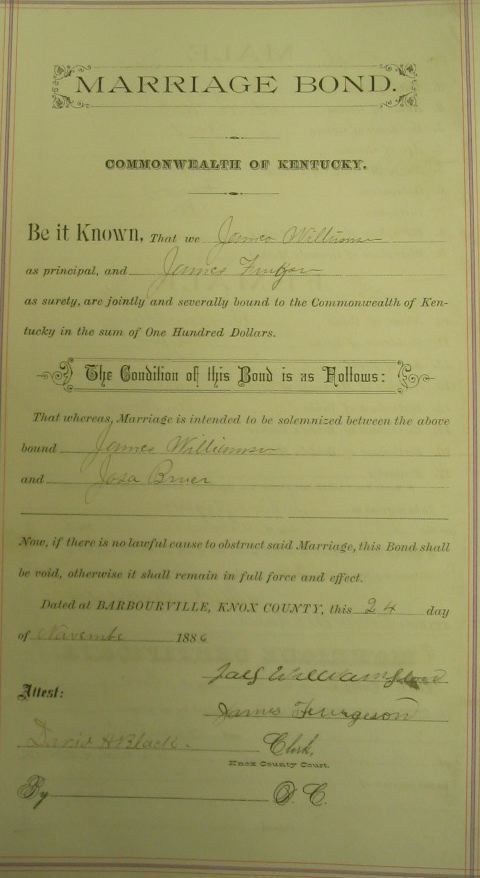 MARRIAGE BOND.
COMMONWEALTH OF KENTUCKY.
Be it Known, That we James Williamson
as principal, and James
as surety, are jointly and severally bound to the Commonwealth of Ken-
tucky in the sum of One Hundred Dollars.
The Condition of this Bond is as Follows:
That whereas, Marriage is intended to be solemnized between the above
bound James Williamson
and Bruer
Now, if there is no lawful cause to obstruct said Marriage, this Bond shall
be void, otherwise it shall remain in full force and effect.
Dated at BARBOURVILLE, KNOX COUNTY, this 24 day
of 1886
Attest:
James Furgeson
David H Black. Clerk,
Knox County Court.
By D. C.